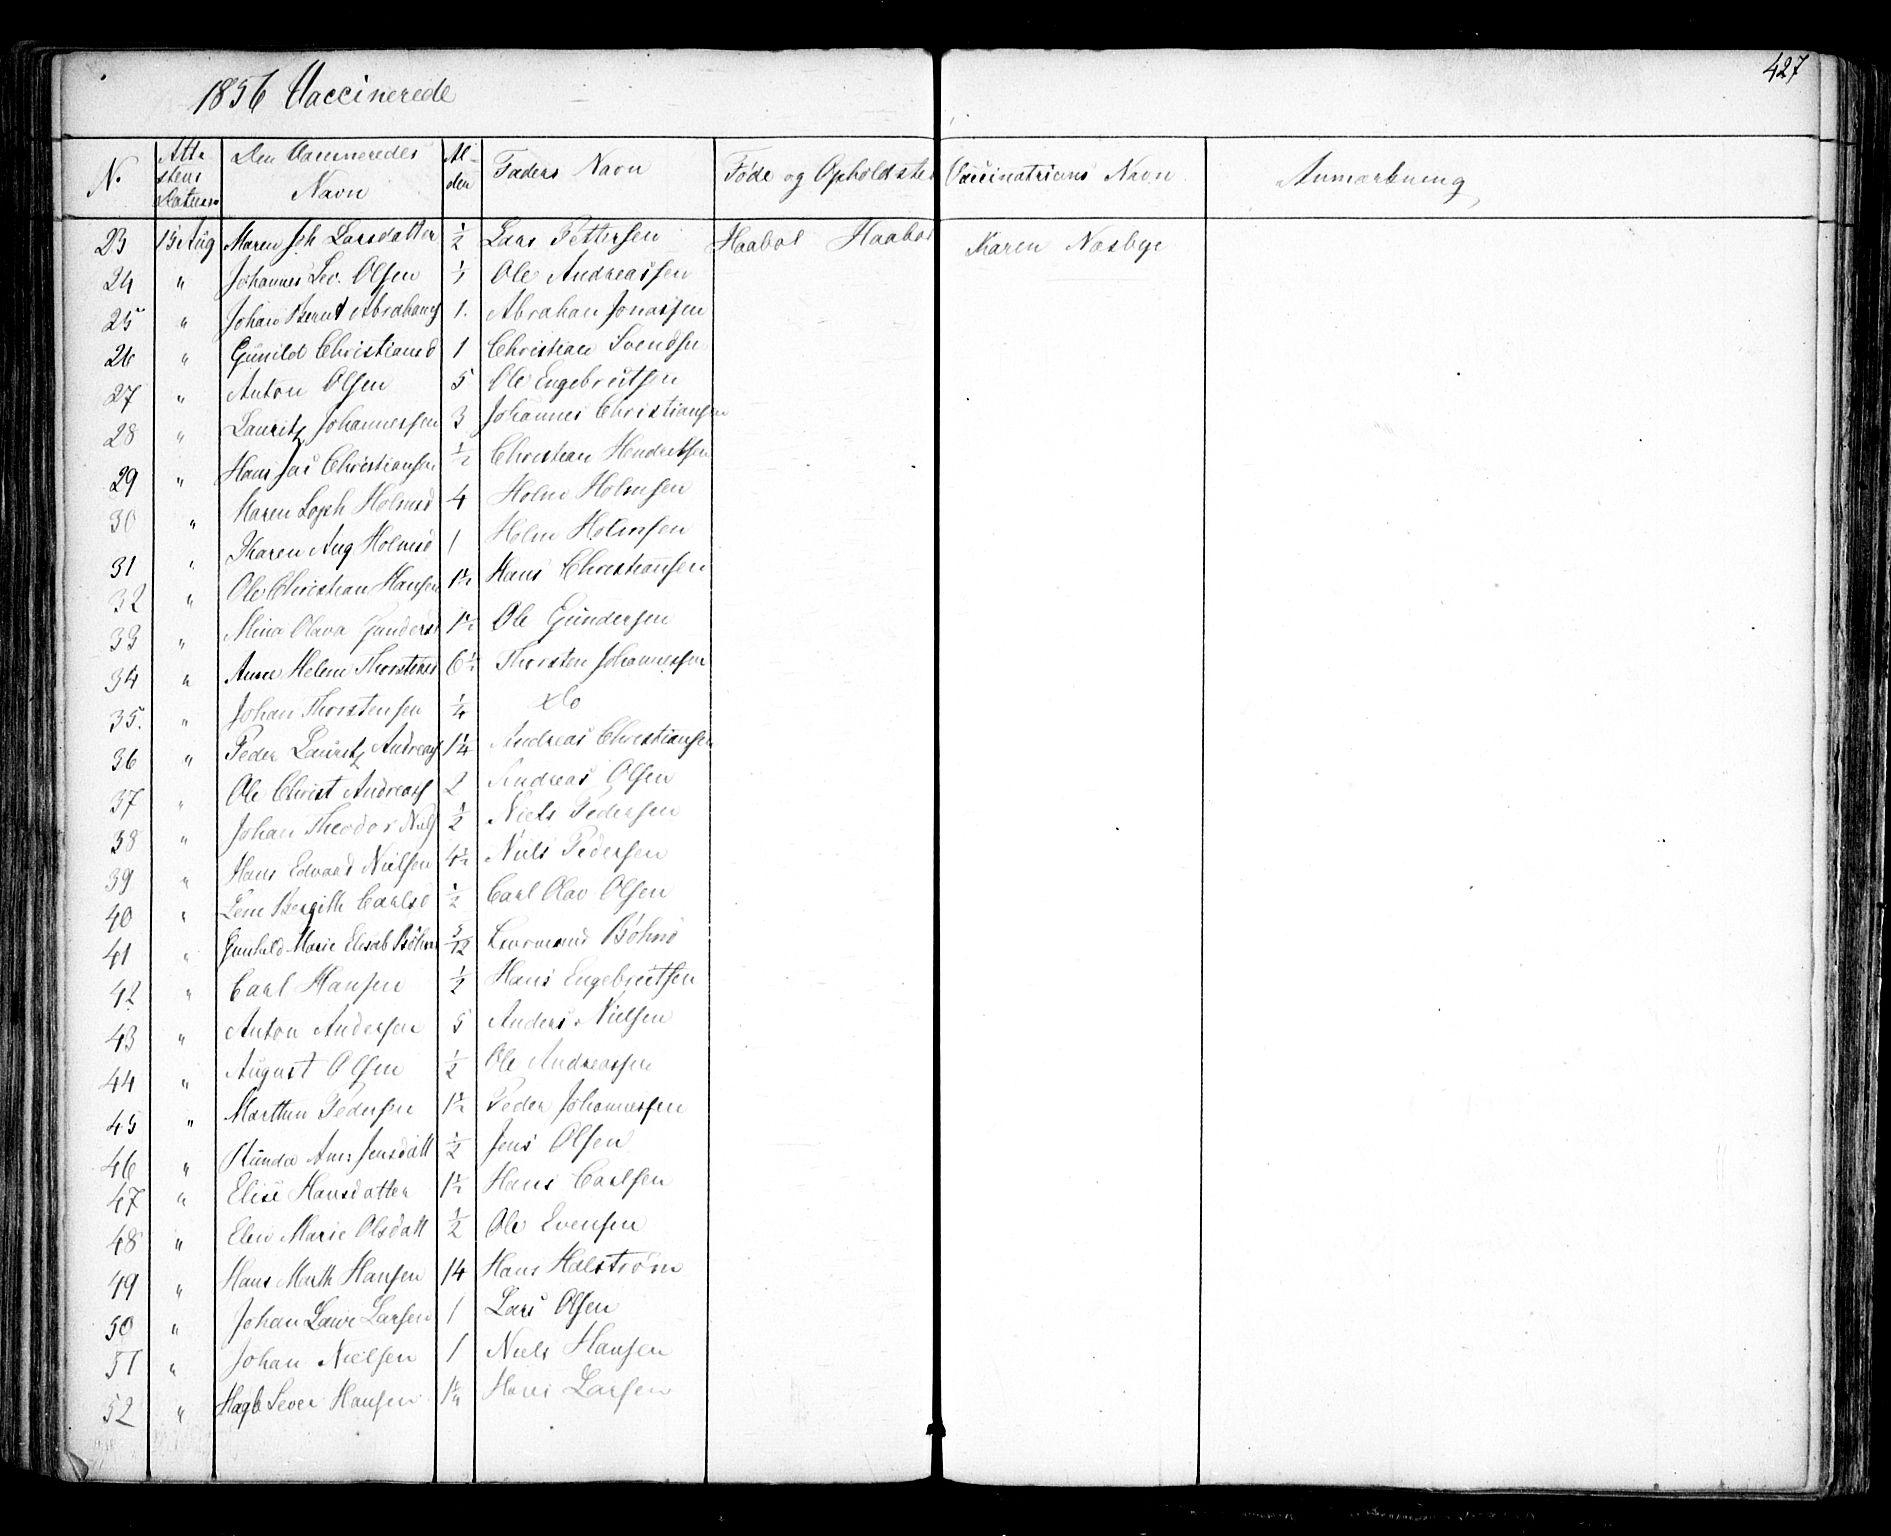 427
1856 Vaccinerede
N. Attestens Datum Den Vaccineredes Navn Alder Faders Navn Føde og Opholdsted Vaccinatricens Navn Anmærkning
23 15 Aug Maren Joh Larsdatter 1/2 Lars Pettersen Haabøl Haabøl Karen Næsbye
24 " Johannes Sev. Olsen Ole Andreassen
25 " Johan Bernt Abrahams 1. Abraham Jonassen
26 " Gunild Christiansd 1 Christian Svendsen
27 " Anton Olsen 5 Ole Engebretsen
28 " Lauritz Johannessen 3 Johannes Christiansen
29 " Hans Jac Christiansen 1/2 Christian Hendriksen
30 " Maren Soph Holmsd 4 Holm Holmsen
31 " Karen Aug Holmsd 1 Holm Holmsen
32 " Ole Christian Hansen 1 1/2 Hans Christiansen
33 " Mina Olava Gundersd 1 1/2 Ole Gundersen
34 " Anne Helene Thorstensd 6 1/2 Thorsten Johannessen
35. " Johan Thorstensen 1/4 do
36 " Peder Lauritz Andreas 1 1/4 Andreas Christiansen
37 " Ole Christ Andreass 2 Andreas Olsen
38 " Johan Theodor Niels 1/2 Niels Pedersen
39 " Hans Edvard Nielsen 4 1/2 Niels Pedersen
40 " Lene Bergith Carlsd 1/2 Carl Olav Olsen
41 " Gunhild Marie Elisab Bøhn 5/12 Bøhn
42 " Carl Hansen 1/2 Hans Engebretsen
43 " Anton Andersen 5 Anders Nielsen
44 " August Olsen 1/2 Ole Andreassen
45 " Marthin Pedersen 1 1/2 Peder Johannessen
46 " Anne Jensdatt 1/2 Jens Olsen
47 " Elise Hansdatter 1 1/2 Hans Carlsen
48 " Elen Marie Olsdatt 1/2 Ole Evensen
49 " Hans Marth Hansen 14 Hans Halstrøm
50 " Johan Larsen 1 Lars Olsen
51 " Johan Nielsen 1 Niels Hansen
52 " Hagb Sever Hansen Hans Larsen